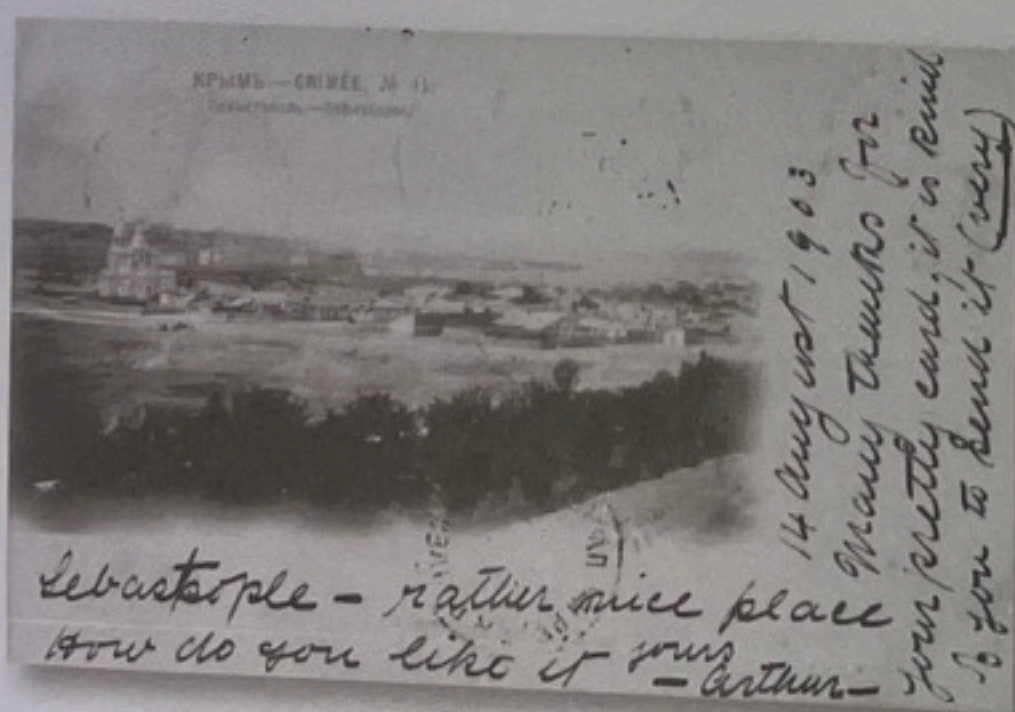 КРЫМЪ — CRIMÉE. №
Севастополь. — Sebastopol
14 August 1903
Many thanks for
your pretty card, it is kind
of you to send it (very)
Sebastople – rather nice place
How do you like it yours
– Arthur –